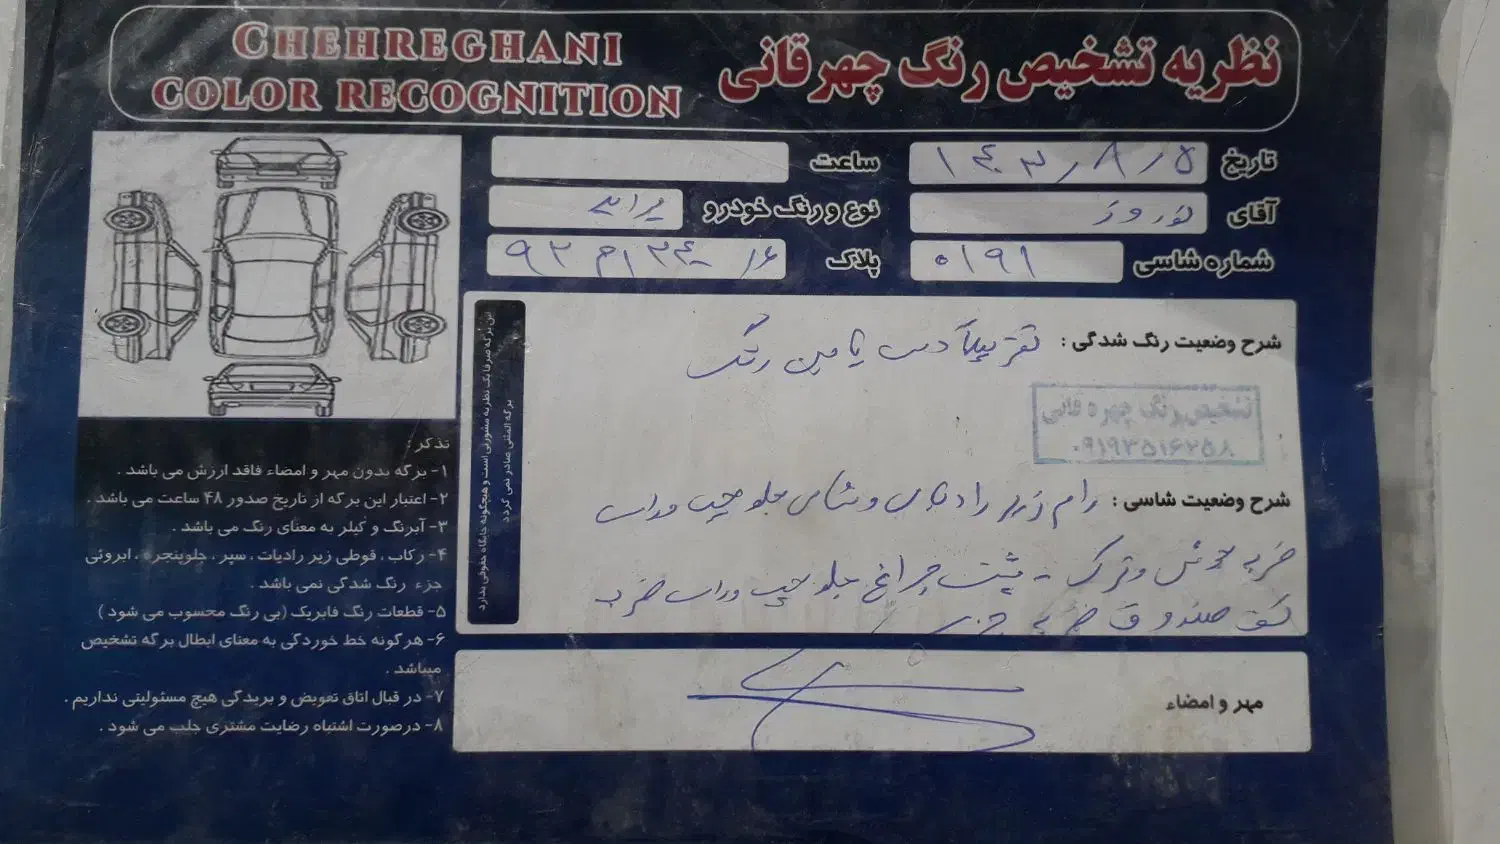 CHEHREGHANI
COLOR RECOGNITION
نظریه تشخیص رنگ چهرقانی
تاریخ ۱۴۰۳/۸/۵
ساعت
آقای نوروز
نوع و رنگ خودرو پراید
شماره شاسی ۰۱۹۱
پلاک
شرح وضعیت رنگ شدگی : تقریباً دست پایین رنگ
تشخیص رنگ چهره قانی
۰۹۱۹۳۵۱۶۲۵۸
شرح وضعیت شاسی : رام زیر رادیاتی و شاسی جلو چپ وراست
ضربه جوش و ترک - پشت چراغ جلو چپ وراست ضربه
کف صندوق ضربه جزیی
مهر و امضاء
این برگه صرفا یک نظریه مشورتی است و هیچگونه جایگاه حقوقی ندارد
برگه المثنی صادر نمی گردد
تذکر :
۱- برگه بدون مهر و امضاء فاقد ارزش می باشد .
۲- اعتبار این برگه از تاریخ صدور ۴۸ ساعت می باشد .
۳- آبرنگ و کیلر به معنای رنگ می باشد .
۴- رکاب ، قوطی زیر رادیات ، سپر ، جلوپنجره ، ابروئی
جزء رنگ شدگی نمی باشد .
۵- قطعات رنگ فابریک (بی رنگ محسوب می شود )
۶- هرگونه خط خوردگی به معنای ابطال برگه تشخیص
میباشد .
۷- در قبال اتاق تعویض و بریدگی هیچ مسئولیتی نداریم .
۸- درصورت اشتباه رضایت مشتری جلب می شود .